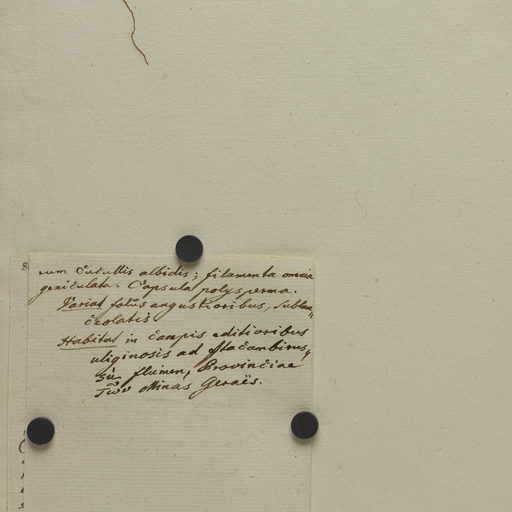 rum cucullis albidis; filamenta omnia
geniculata. Capsula polysperma.
Variat foliis angustioribus, sublan„
ceolatis
Habitat in campis editioribus
uliginosis ad Macambiras,
flumen, Provinciae
Minas Geraës.